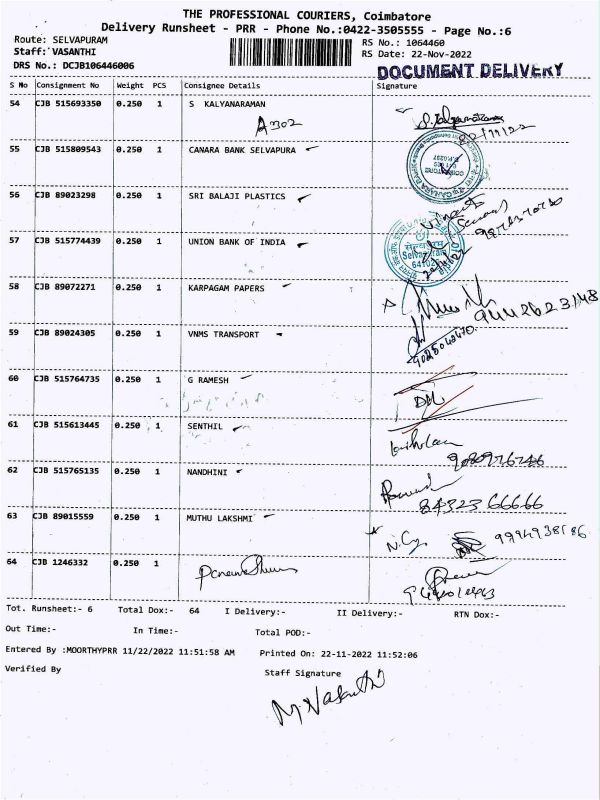 THE PROFESSIONAL COURIERS, Coimbatore
Delivery Runsheet - PRR - Phone No.:0422-3505555 - Page No.:6
Route: SELVAPURAM
RS No.: 1064460
Staff: VASANTHI
RS Date: 22-Nov-2022
DRS No.: DCJB106446006
DOCUMENT DELIVERY
S No Consignment No Weight PCS Consignee Details Signature
54 CJB 515693350 0.250 1 S KALYANARAMAN
A302
55 CJB 515809543 0.250 1 CANARA BANK SELVAPURA
56 CJB 89023298 0.250 1 SRI BALAJI PLASTICS
57 CJB 515774439 0.250 1 UNION BANK OF INDIA
Selvapuram
58 CJB 89072271 0.250 1 KARPAGAM PAPERS
9442623148
59 CJB 89024305 0.250 1 VNMS TRANSPORT
60 CJB 515764735 0.250 1 G RAMESH
61 CJB 515613445 0.250 1 SENTHIL
62 CJB 515765135 0.250 1 NANDHINI
63 CJB 89015559 0.250 1 MUTHU LAKSHMI
64 CJB 1246332 0.250 1
Tot. Runsheet:- 6 Total Dox:- 64 I Delivery:- II Delivery:- RTN Dox:-
Out Time:- In Time:- Total POD:-
Entered By :MOORTHYPRR 11/22/2022 11:51:58 AM Printed On: 22-11-2022 11:52:06
Verified By Staff Signature
M Vasanthi